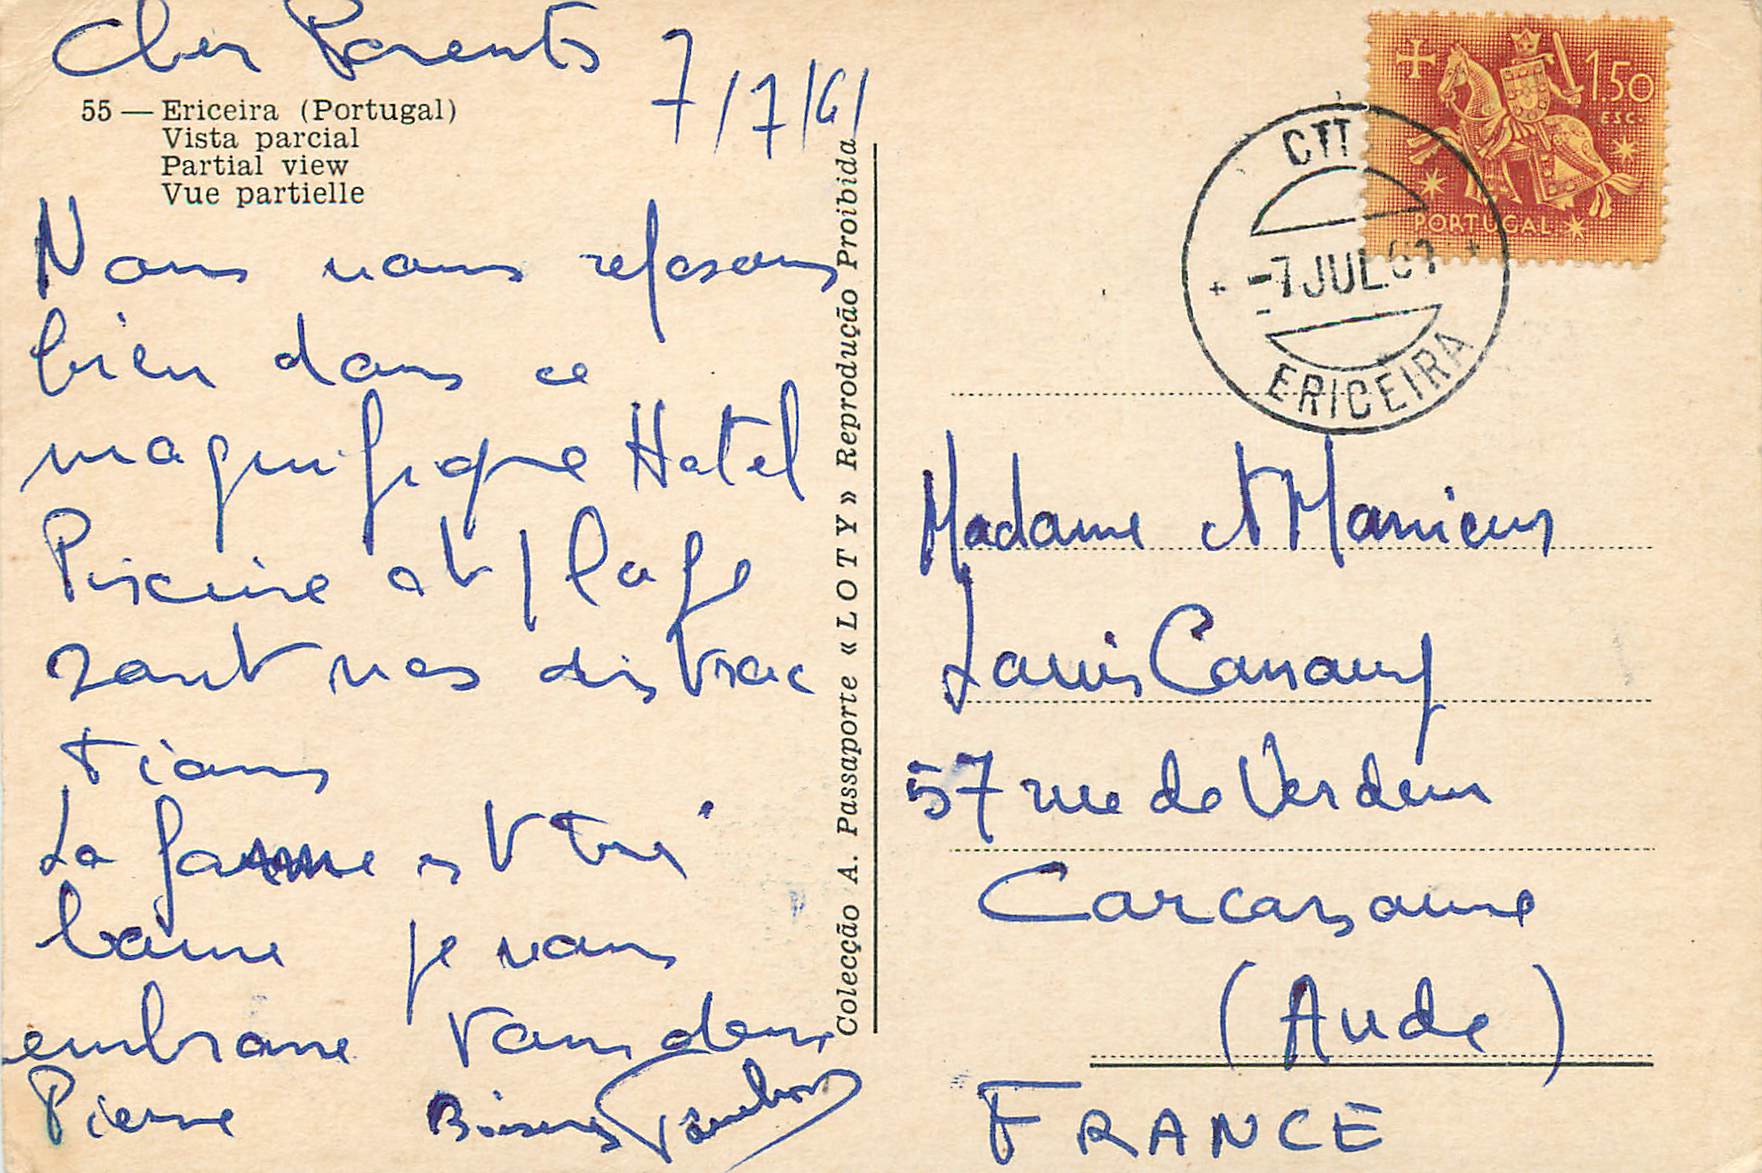 Cher Parents 7/7/61
55 — Ericeira (Portugal)
Vista parcial
Partial view
Vue partielle
Nous nous reposons
bien dans ce
magnifique Hotel
Piscine et plage
sont nos distrac
tions
La femme est très
bonne je vous
embrasse tous deux
Pierre Baisers
Colecção A. Passaporte « LOTY » Reprodução Proibida
1.50
ESC.
PORTUGAL
CTT
-7 JUL.61
ERICEIRA
Madame et Monsieur
Louis
57 rue de Verdun
Carcassonne
(Aude)
FRANCE